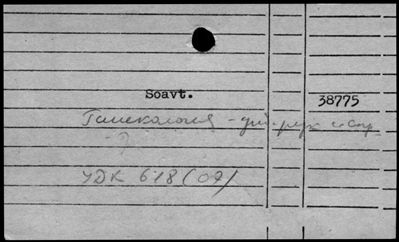 Soavt.
38775
Гинекология -
- ?
УДК 618 (07)